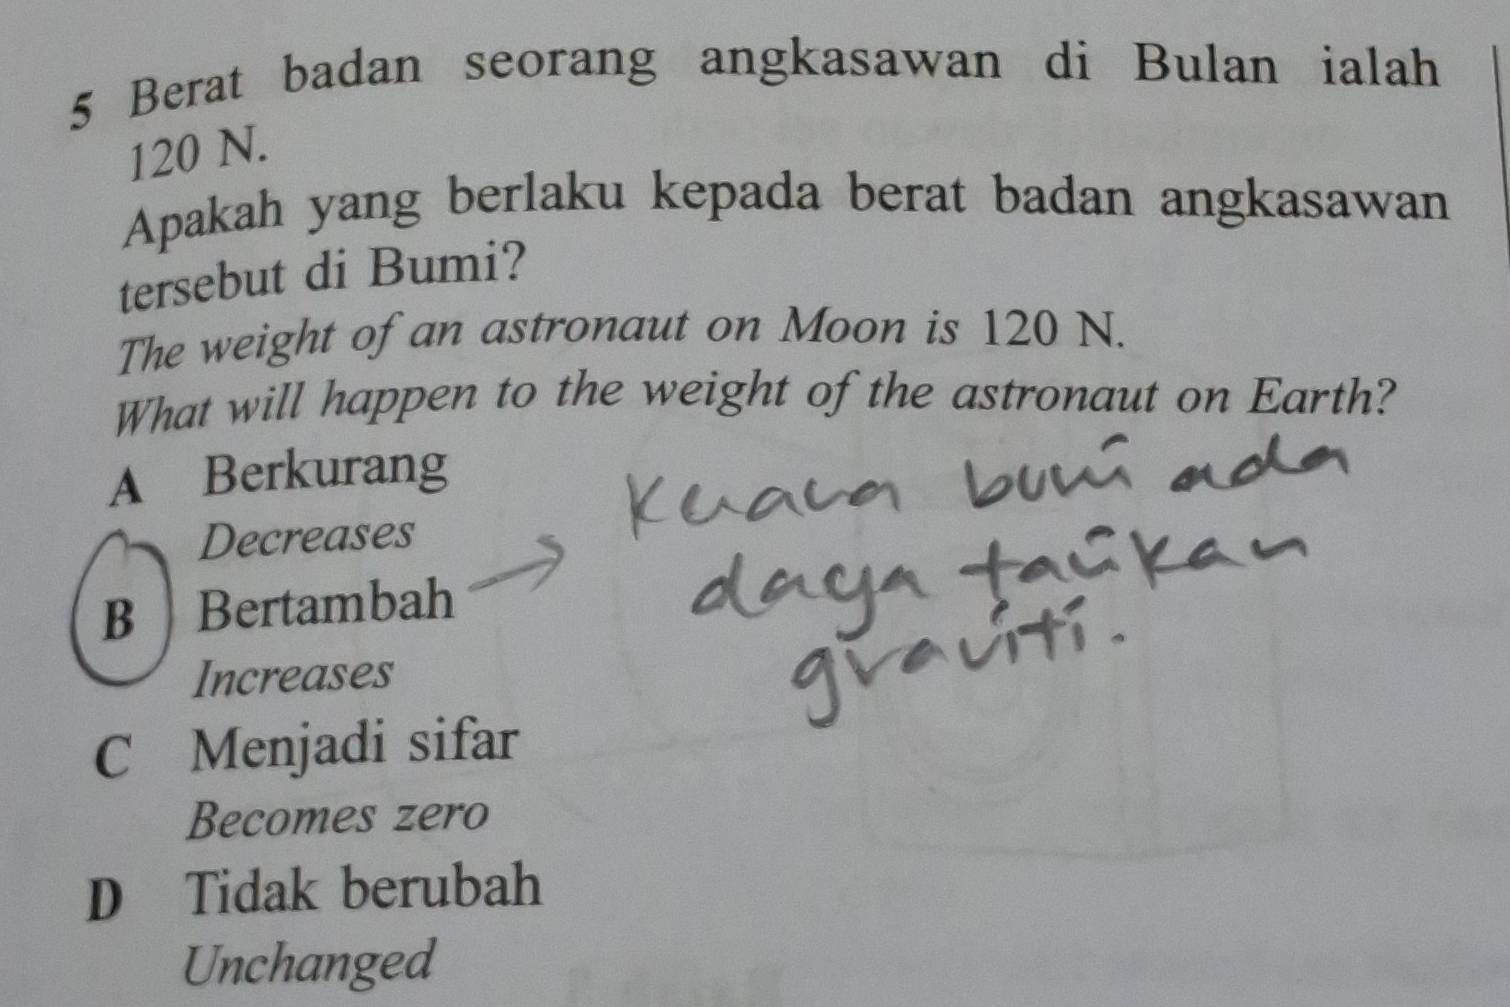 5 Berat badan seorang angkasawan di Bulan ialah
120 N.
Apakah yang berlaku kepada berat badan angkasawan
tersebut di Bumi?
The weight of an astronaut on Moon is 120 N.
What will happen to the weight of the astronaut on Earth?
A Berkurang
Decreases
B Bertambah → 
Increases
C Menjadi sifar
Becomes zero
D Tidak berubah
Unchanged
bumi ada
daya tarikan
graviti.